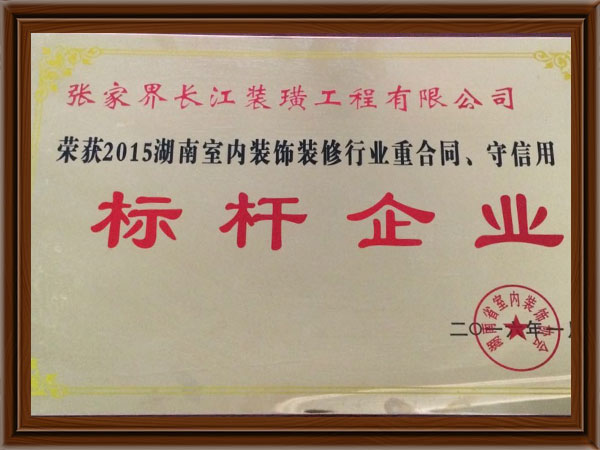 张家界长江装璜工程有限公司
荣获2015湖南室内装饰装修行业重合同、守信用
标杆企业
湖南省室内装饰协会
二〇一六年一月